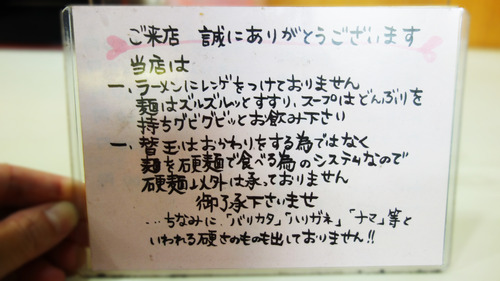 ご来店 誠にありがとうございます
当店は
一、ラーメンにレンゲをつけておりません
麺はズルズルッとすすり、スープはどんぶりを
持ちグビグビッとお飲み下さい
一、替玉はおかわりをする為ではなく
麺を硬麺で食べる為のシステムなので
硬麺以外は承っておりません
御了承下さいませ
…ちなみに「バリカタ」「ハリガネ」「ナマ」等と
いわれる硬さのものも出しておりません!!